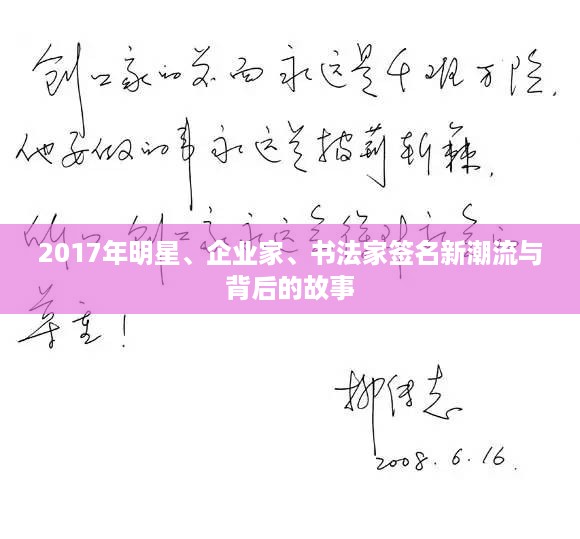 创业家的前面永远是千难万险,
他要做的事永远是披荆斩棘,
创业家永远
2017年明星、企业家、书法家签名新潮流与
背后的故事
尊重!
柳传志
2008.6.16.